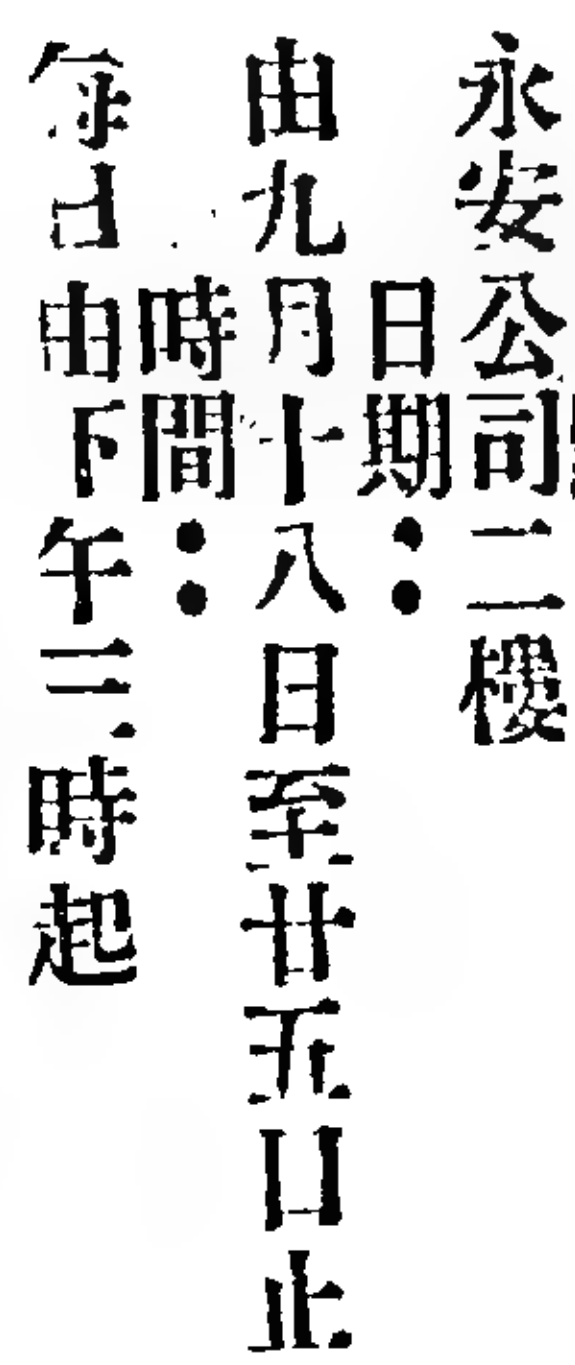 永安公司二樓
日期：
由九月十八日至廿五日止
時間：
每日由下午三時起